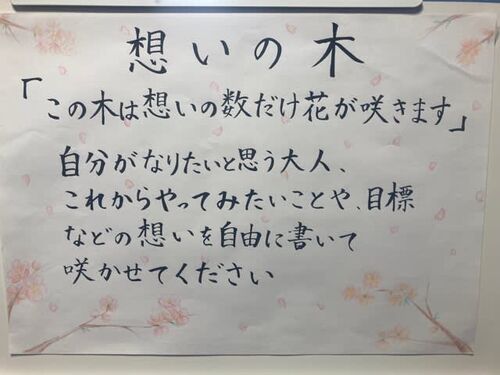 想いの木
「この木は想いの数だけ花が咲きます」
自分がなりたいと思う大人、
これからやってみたいことや、目標
などの想いを自由に書いて
咲かせてください